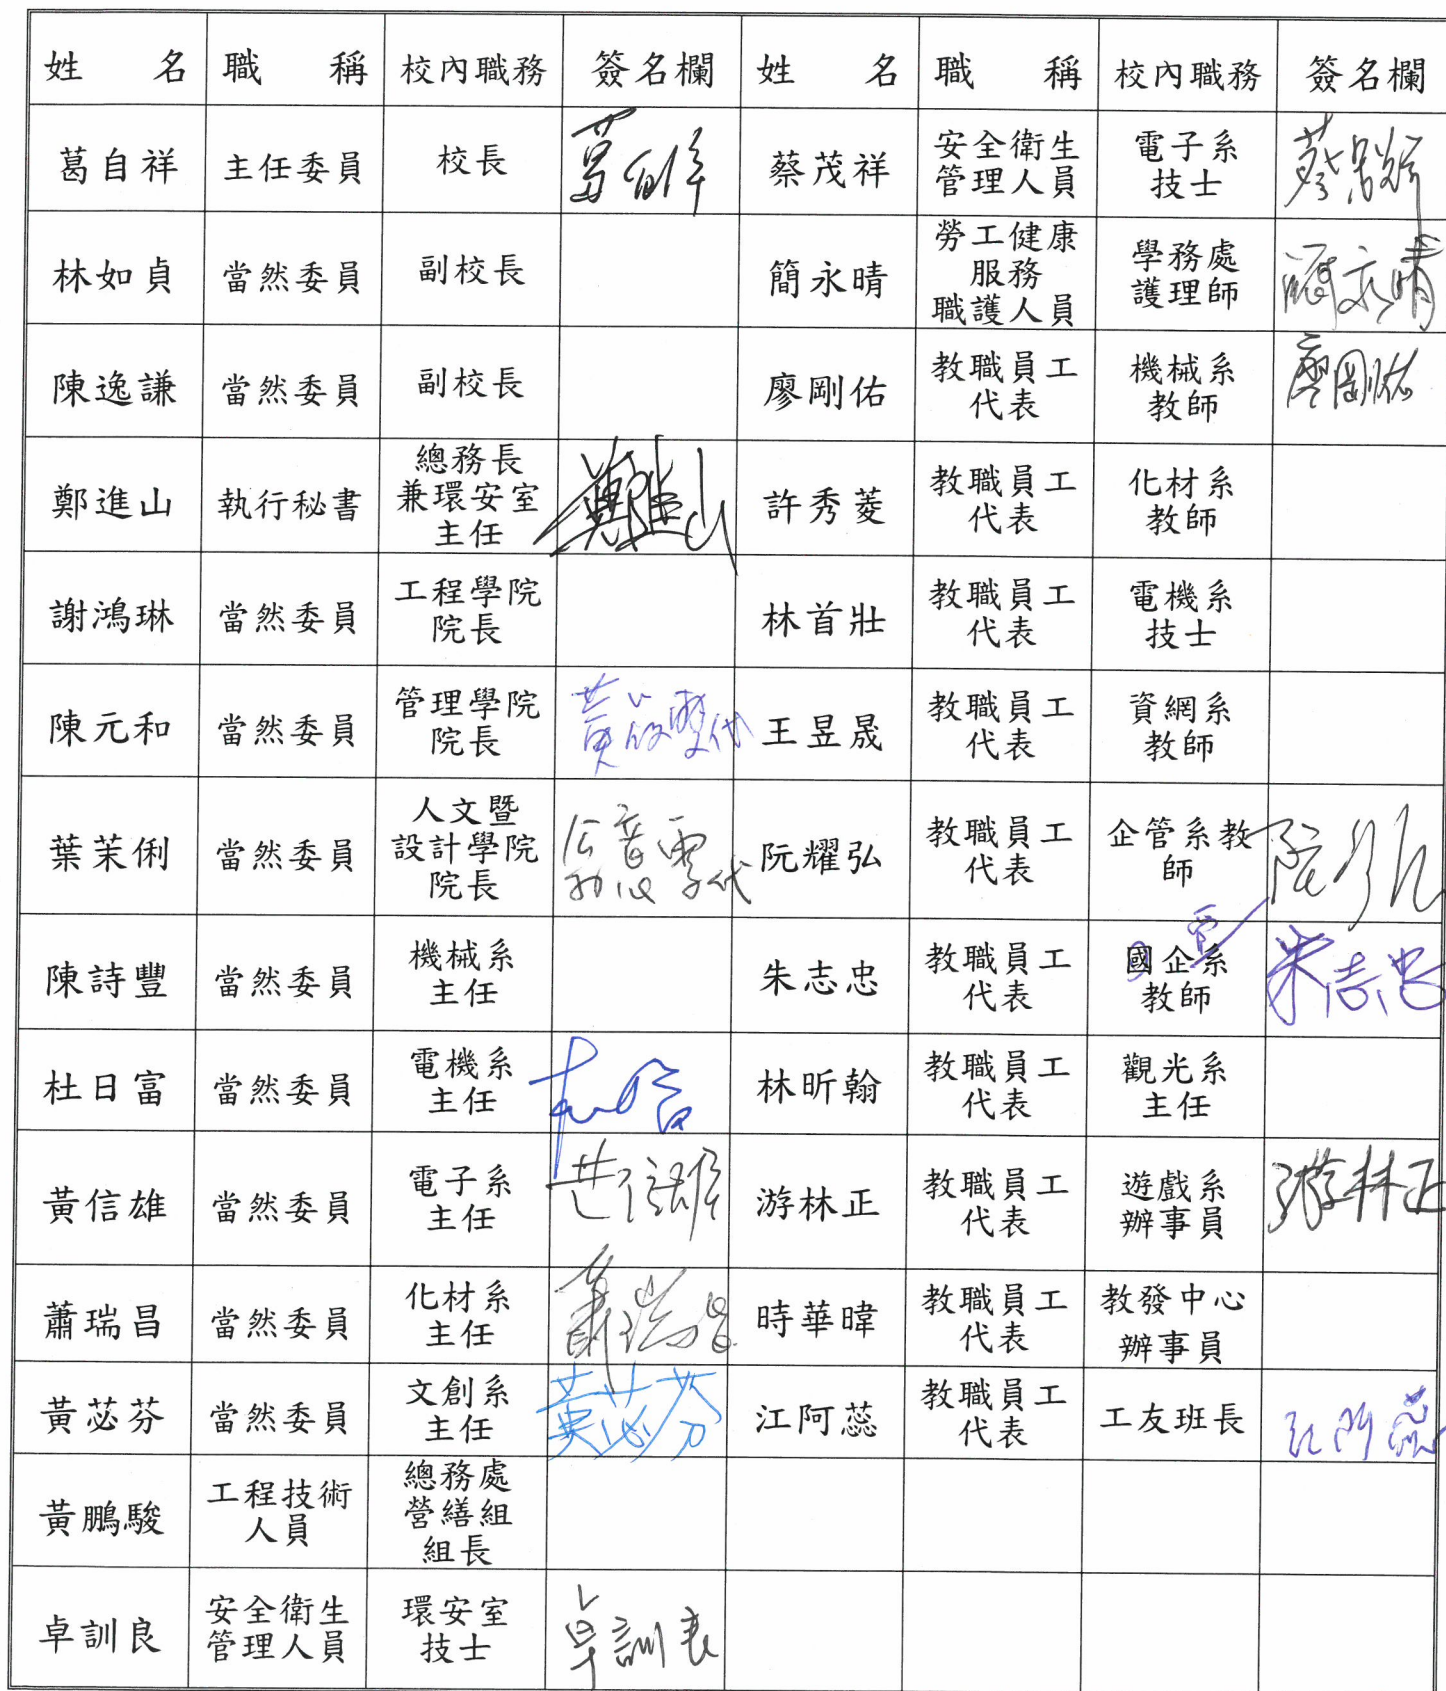 姓 名 職 稱 校內職務 簽名欄 姓 名 職 稱 校內職務 簽名欄
葛自祥 主任委員 校長 葛自祥 蔡茂祥 安全衛生管理人員 電子系技士
林如貞 當然委員 副校長 簡永晴 勞工健康服務職護人員 學務處護理師 簡永晴
陳逸謙 當然委員 副校長 廖剛佑 教職員工代表 機械系教師 廖剛佑
鄭進山 執行秘書 總務長兼環安室主任 鄭進山 許秀菱 教職員工代表 化材系教師
謝鴻琳 當然委員 工程學院院長 林首壯 教職員工代表 電機系技士
陳元和 當然委員 管理學院院長 王昱晟 教職員工代表 資網系教師
葉茉俐 當然委員 人文暨設計學院院長 阮耀弘 教職員工代表 企管系教師
陳詩豐 當然委員 機械系主任 朱志忠 教職員工代表 國企系教師 朱志忠
杜日富 當然委員 電機系主任 林昕翰 教職員工代表 觀光系主任
黃信雄 當然委員 電子系主任 黃信雄 游林正 教職員工代表 遊戲系辦事員 游林正
蕭瑞昌 當然委員 化材系主任 蕭瑞昌 時華暐 教職員工代表 教發中心辦事員
黃苾芬 當然委員 文創系主任 黃苾芬 江阿蕊 教職員工代表 工友班長 江阿蕊
黃鵬駿 工程技術人員 總務處營繕組組長
卓訓良 安全衛生管理人員 環安室技士 卓訓良